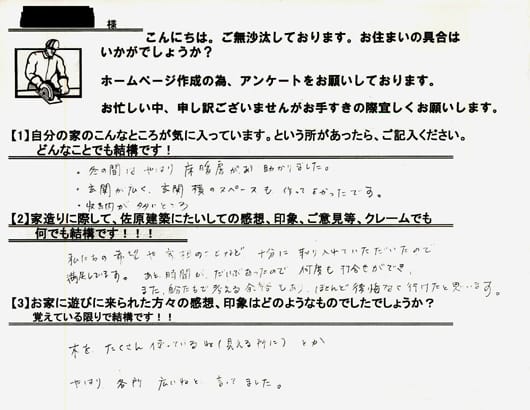 様
こんにちは。ご無沙汰しております。お住まいの具合は
いかがでしょうか？
ホームページ作成の為、アンケートをお願いしております。
お忙しい中、申し訳ございませんがお手すきの際宜しくお願いします。
【1】自分の家のこんなところが気に入っています。という所があったら、ご記入ください。
どんなことでも結構です！
・冬の間はやはり床暖房があり助かりました。
・玄関が広く、玄関横のスペースも作ってよかったです。
・収納が多いところ
【2】家造りに際して、佐原建築にたいしての感想、印象、ご意見等、クレームでも
何でも結構です！！！
私たちの希望や予想のことなど十分に取り入れていただいたので
満足しています。あと、時間がだいぶあったので何度も打合せができ、
また、自分たちで考える余裕もあり、ほとんど後悔なく行けたと思います。
【3】お家に遊びに来られた方々の感想、印象はどのようなものでしたでしょうか？
覚えている限りで結構です！！
木をたくさん使っているね（見える所に）とか
やはり各所広いねと言ってました。